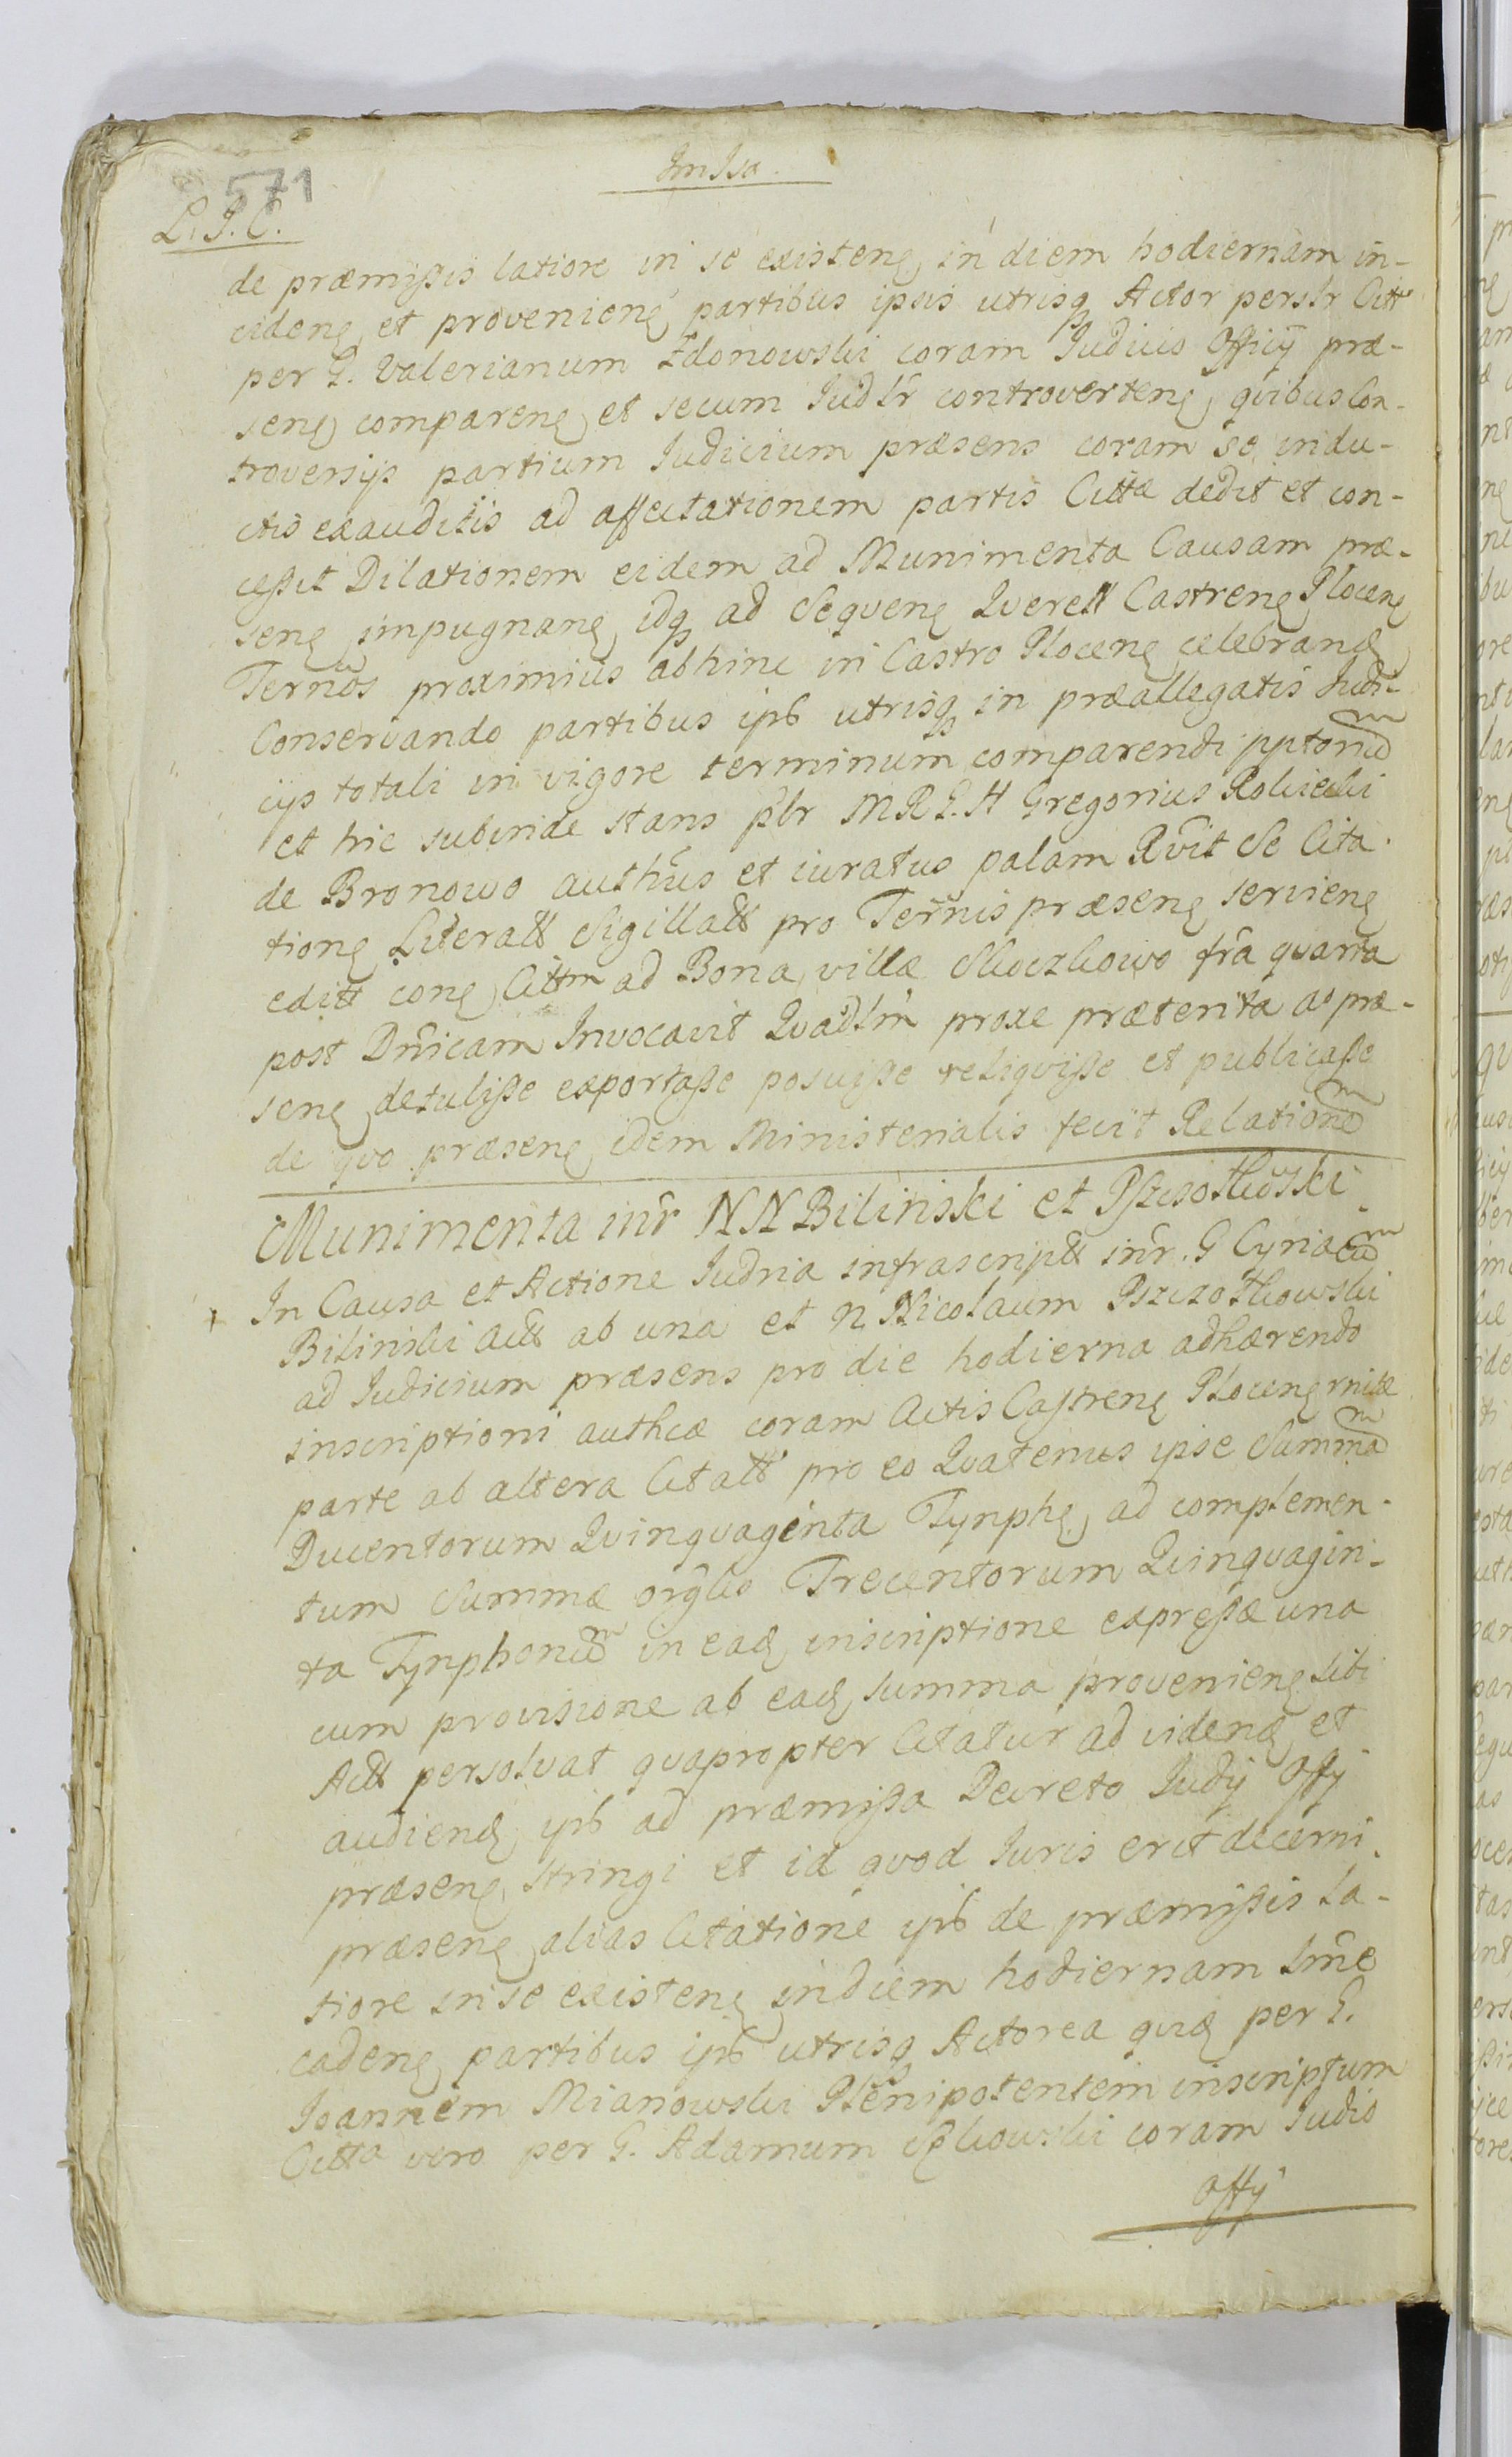 571
Im Isa.
L. I. C.
de præmißis latiore in se existenę in diem hodiernam in-
cidenę et provenienę partibus ipsis utrisq Actor perslr Citt
per G. Valerianum Zdonowski coram Judicio Officij præ-
senę comparenę et secum Judlr controvertenę qvibus Con-
troversijs partium Judicium præsens coram se indu-
ctis exauditis ad affectationem partis Cittæ dedit et con-
ceßit Dilationem eidem ad Munimenta Causam præ-
senę impugnanę idq ad Seqvenę Querell Castrenę Plocenę
Termõs proximius abhinc in Castro Plocenę celebranđ
Conservando partibus ipš utrisq in præallegatis Judi-
cijs totali in vigore terminum comparendi pptorium
et hic subinde stans psłr MRG. H Gregorius Rokicki
de Bronowo authũs et iuratus palam Rvit Se Cita-
tionę Literałł Sigillałł pro Termis præsenę servienę
editt conę Cittm ad Bona villæ Skoczkowo fra quarta
post Dnicam Invocavit Qvadlm proxe præterita ac præ-
senę detuliße exportaße posuiße reliqviße et publicaße
de qvo præsenę idem Ministerialis fecit Relationem
Munimenta inr NN Biliński et Pszczotkowski
In Causa et Actione Judria infrascriptt inr. G Cyriacum
Biliński Actt ab una et N Nicolaum Pszczotkowski
ad Judicium præsens pro die hodierna adhærendo
inscriptioni authcæ coram Actis Castrenę Plocenę rnitæ
parte ab altera Citatt pro eo Qvatenus ipse Summam
Ducentorum Qvinqvaginta Tynphę ad complemen-
tum Summæ orglis Trecentorum Qvinqvagin-
ta Tynphorum in eađ inscriptione expreßæ una
cum provisione ab eađ summa provenienę sibi
Actt persolvat qvapropter Citatur ad videnđ et
audienđ ipš ad præmißa Decreto Judij Offij
præsenę stringi et id qvod Iuris erit decerni.
præsenę alias Citatione ipš de præmißis la-
tiore in se existenę in diem hodiernam lme
cadenę partibus ipš utrisq Actorea qvið per G.
Joannem Mianowski Plenipotentem inscriptum
Citta vero per G. Adamum coram Judio
Offij